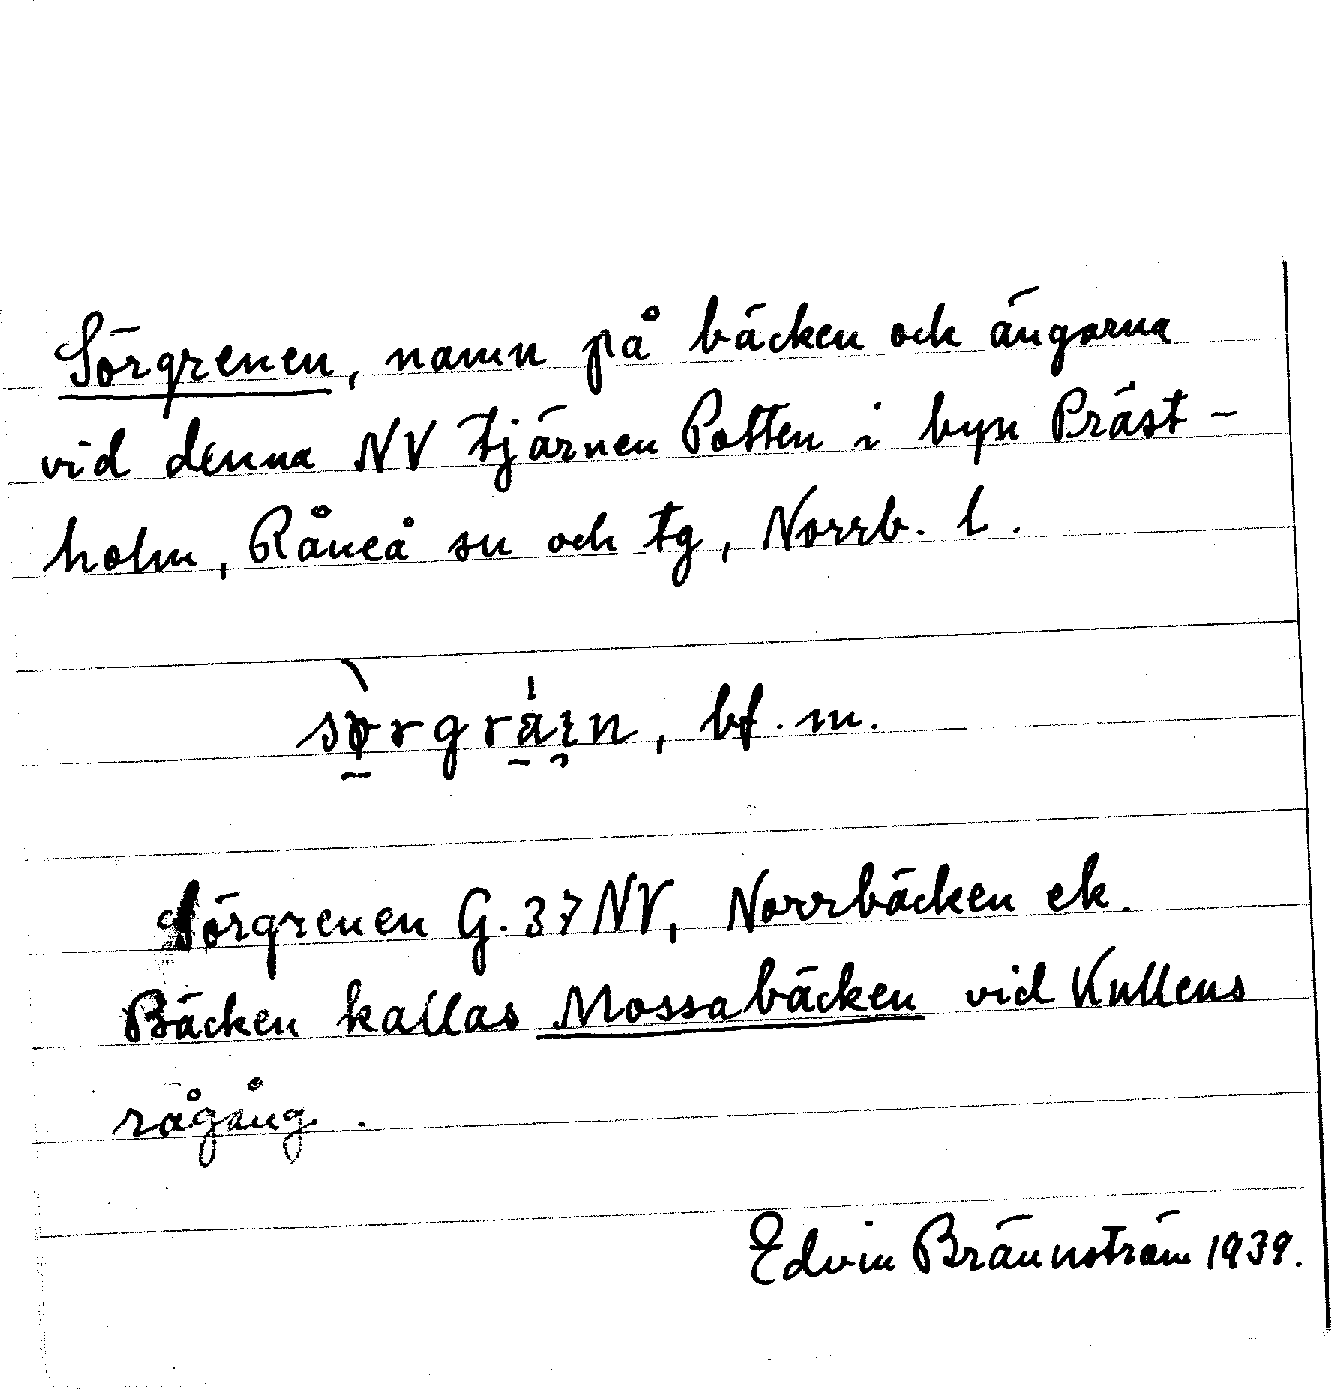 Sörgrenen, namn på bäcken och ängarna
vid denna NV tjärnen Potten i byn Präst-
holm, Råneå sn och tg, Norrb. l.
bf. m.
Sörgrenen G. 37 NV, Norrbäcken ek.
Bäcken kallas Mossabäcken vid Kullens
rågång.
Edvin Brännström 1939.